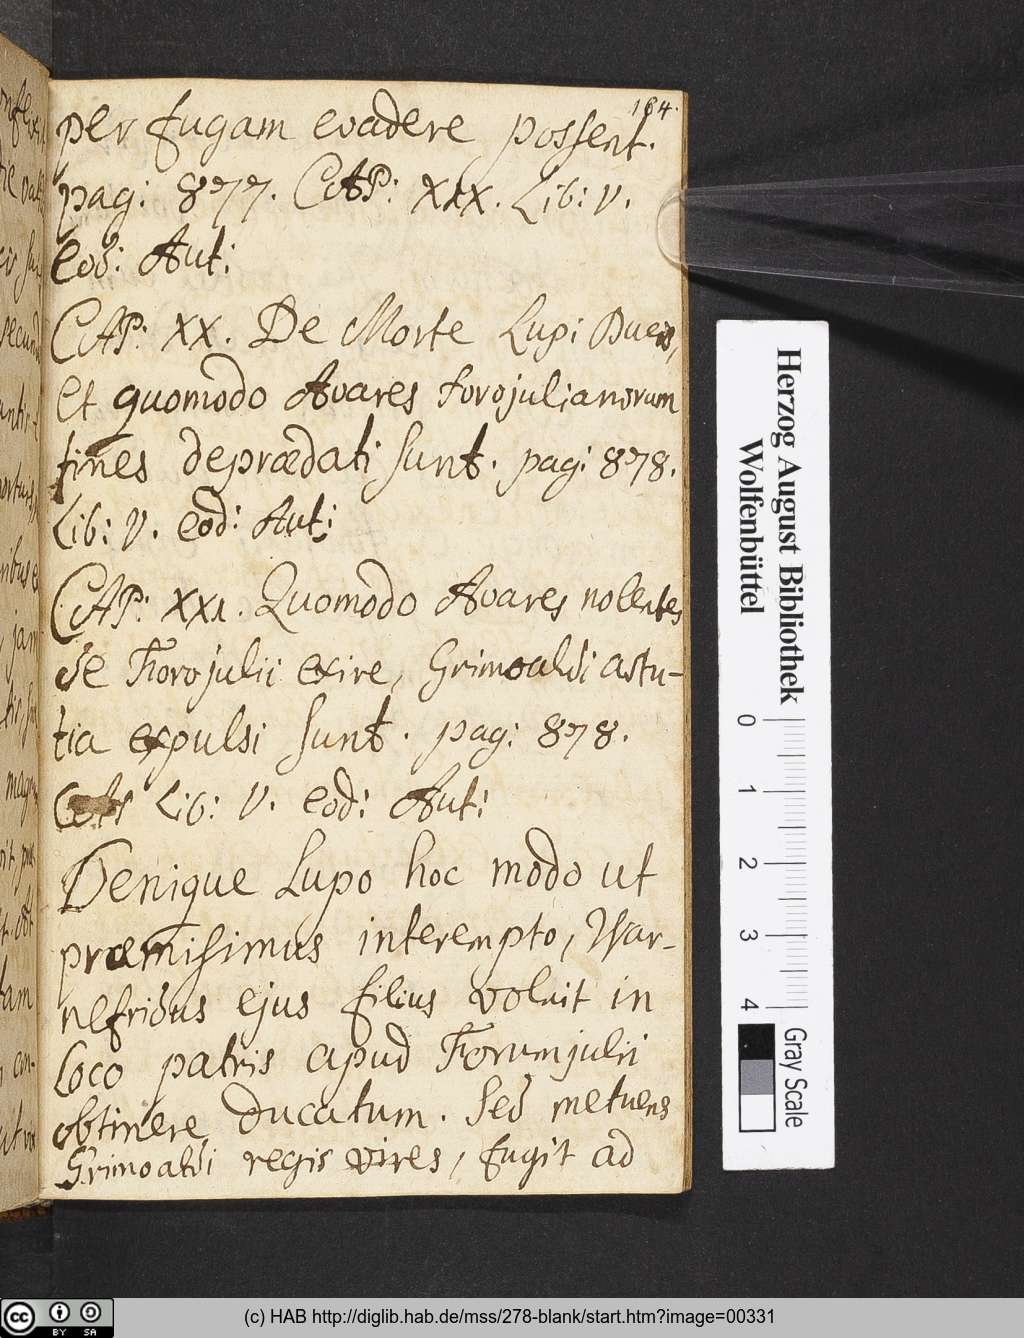 184.
per fugam evadere possent.
pag: 877. CAP: XIX. Lib: V.
eod: Aut:
CAP: XX. De Morte Lupi Ducis,
et quomodo Avares Forojulianorum
fines deprædati sunt. pag: 878.
Lib: V. eod: Aut:
CAP: XXI. Quomodo Avares nolentes
de Forojulii exire, Grimoaldi astu-
tia expulsi sunt. pag: 878.
Lib: V. eod: Aut:
Denique Lupo hoc modo ut
præmisimus interempto, War-
nefridus ejus filius voluit in
loco patris apud Forumjulii
obtinere ducatum. Sed metuens
Grimoaldi regis vires, fugit ad
Herzog August Bibliothek
Wolfenbüttel
0 1 2 3 4
Gray Scale
cc BY SA
(c) HAB http://diglib.hab.de/mss/278-blank/start.htm?image=00331